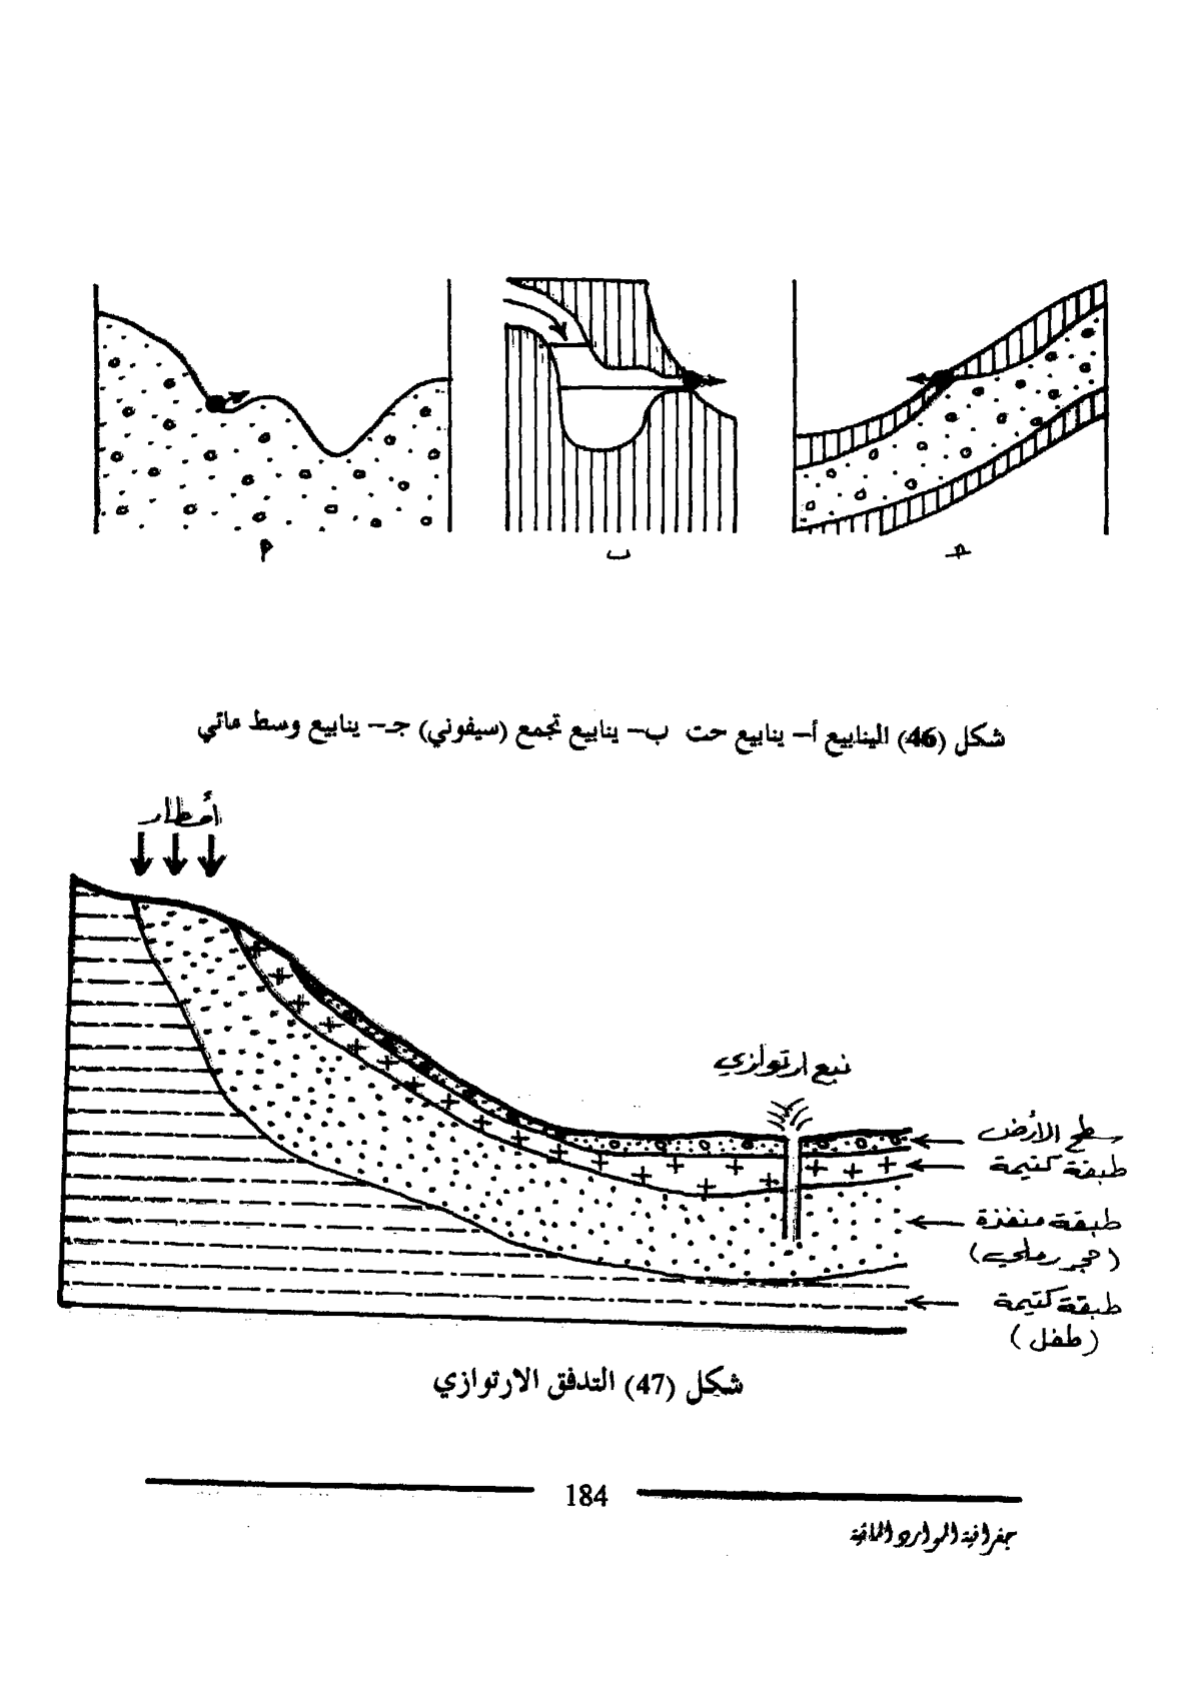 أ
ب
جـ
شكل (46) الينابيع أ– ينابيع حت ب– ينابيع تجمع (سيفوني) جـ– ينابيع وسط مائي
أمطار
نبع ارتوازي
سطح الأرض
طبقة كتيمة
طبقة منفذة
(حجر رملي)
طبقة كتيمة
(طفل)
شكل (47) التدفق الارتوازي
184
جغرافية الموارد المائية